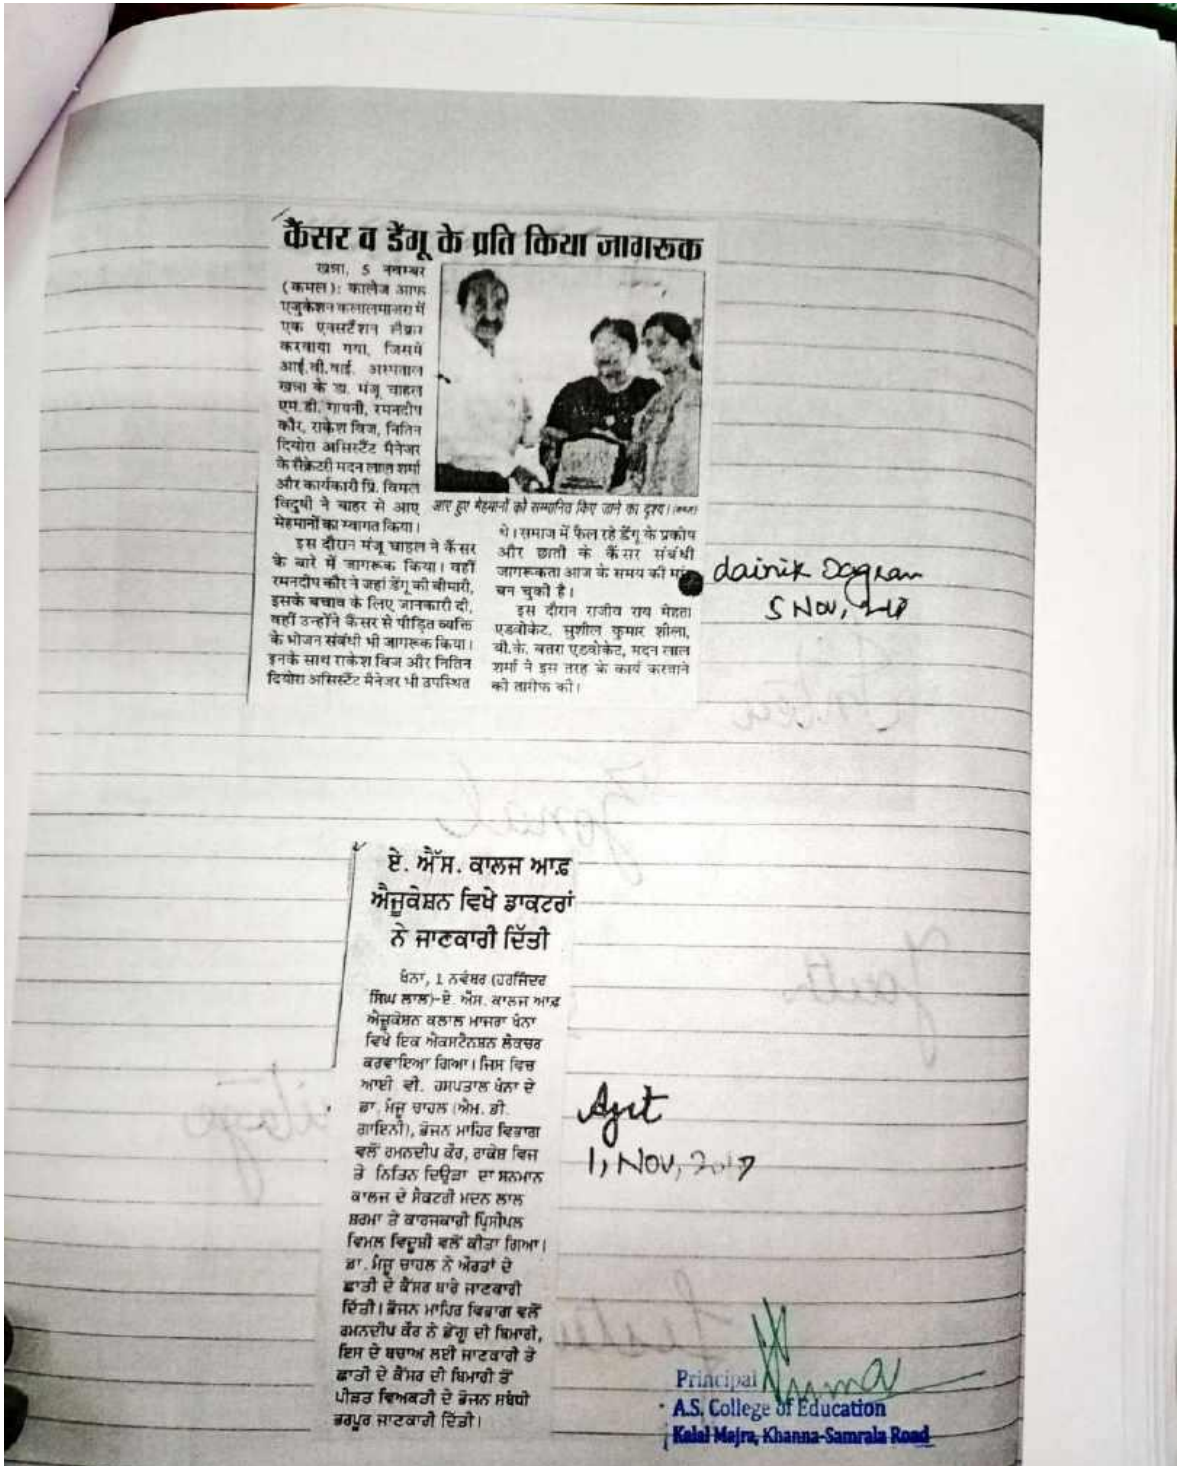 कैंसर व डेंगू के प्रति किया जागरूक
खन्ना, 5 नवम्बर
(कमल): कालेज आफ
एजुकेशन कलालमाजरा में
एक एक्सटैंशन लैक्चर
करवाया गया, जिसमें
आई.वी.वाई. अस्पताल
खन्ना के डा. मंजू चाहल
एम.डी. गायनी, रमनदीप
कौर, राकेश विज, नितिन
दियोरा असिस्टैंट मैनेजर
के सैक्रेटरी मदन लाल शर्मा
और कार्यकारी प्रि. विमल
विदुषी ने बाहर से आए
मेहमानों का स्वागत किया।
इस दौरान मंजू चाहल ने कैंसर
के बारे में जागरूक किया। वहीं
रमनदीप कौर ने जहां डेंगू की बीमारी,
इसके बचाव के लिए जानकारी दी,
वहीं उन्होंने कैंसर से पीड़ित व्यक्ति
के भोजन संबंधी भी जागरूक किया।
इनके साथ राकेश विज और नितिन
दियोरा असिस्टैंट मैनेजर भी उपस्थित
आए हुए मेहमानों को सम्मानित किए जाने का दृश्य। (कमल)
थे। समाज में फैल रहे डेंगू के प्रकोप
और छाती के कैंसर संबंधी
जागरूकता आज के समय की
बन चुकी है।
इस दौरान राजीव राय मेहता
एडवोकेट, सुशील कुमार शीला,
बी.के. बतरा एडवोकेट, मदन लाल
शर्मा ने इस तरह के कार्य करवाने
की तारीफ की।
dainik Jagran
5 Nov,
ਏ. ਐੱਸ. ਕਾਲਜ ਆਫ਼
ਐਜੂਕੇਸ਼ਨ ਵਿਖੇ ਡਾਕਟਰਾਂ
ਨੇ ਜਾਣਕਾਰੀ ਦਿੱਤੀ
ਖੰਨਾ, 1 ਨਵੰਬਰ (ਹਰਜਿੰਦਰ
ਸਿੰਘ ਲਾਲ)-ਏ. ਐੱਸ. ਕਾਲਜ ਆਫ਼
ਐਜੂਕੇਸ਼ਨ ਕਲਾਲ ਮਾਜਰਾ ਖੰਨਾ
ਵਿਖੇ ਇਕ ਐਕਸਟੈਨਸ਼ਨ ਲੈਕਚਰ
ਕਰਵਾਇਆ ਗਿਆ। ਜਿਸ ਵਿਚ
ਆਈ ਵੀ. ਹਸਪਤਾਲ ਖੰਨਾ ਦੇ
ਡਾ. ਮੰਜੂ ਚਾਹਲ (ਐਮ. ਡੀ.
ਗਾਇਨੀ), ਭੋਜਨ ਮਾਹਿਰ ਵਿਭਾਗ
ਵਲੋਂ ਰਮਨਦੀਪ ਕੌਰ, ਰਾਕੇਸ਼ ਵਿਜ
ਤੇ ਨਿਤਿਨ ਦਿਉੜਾ ਦਾ ਸਨਮਾਨ
ਕਾਲਜ ਦੇ ਸੈਕਟਰੀ ਮਦਨ ਲਾਲ
ਸ਼ਰਮਾ ਤੇ ਕਾਰਜਕਾਰੀ ਪ੍ਰਿੰਸੀਪਲ
ਵਿਮਲ ਵਿਦੂਸ਼ੀ ਵਲੋਂ ਕੀਤਾ ਗਿਆ।
ਡਾ. ਮੰਜੂ ਚਾਹਲ ਨੇ ਔਰਤਾਂ ਦੇ
ਛਾਤੀ ਦੇ ਕੈਂਸਰ ਬਾਰੇ ਜਾਣਕਾਰੀ
ਦਿੱਤੀ। ਭੋਜਨ ਮਾਹਿਰ ਵਿਭਾਗ ਵਲੋਂ
ਰਮਨਦੀਪ ਕੌਰ ਨੇ ਡੇਂਗੂ ਦੀ ਬਿਮਾਰੀ,
ਇਸ ਦੇ ਬਚਾਅ ਲਈ ਜਾਣਕਾਰੀ ਤੇ
ਛਾਤੀ ਦੇ ਕੈਂਸਰ ਦੀ ਬਿਮਾਰੀ ਤੋਂ
ਪੀੜਤ ਵਿਅਕਤੀ ਦੇ ਭੋਜਨ ਸਬੰਧੀ
ਭਰਪੂਰ ਜਾਣਕਾਰੀ ਦਿੱਤੀ।
Ajit
1, Nov, 2017
Principal
A.S. College of Education
Kalal Majra, Khanna-Samrala Road